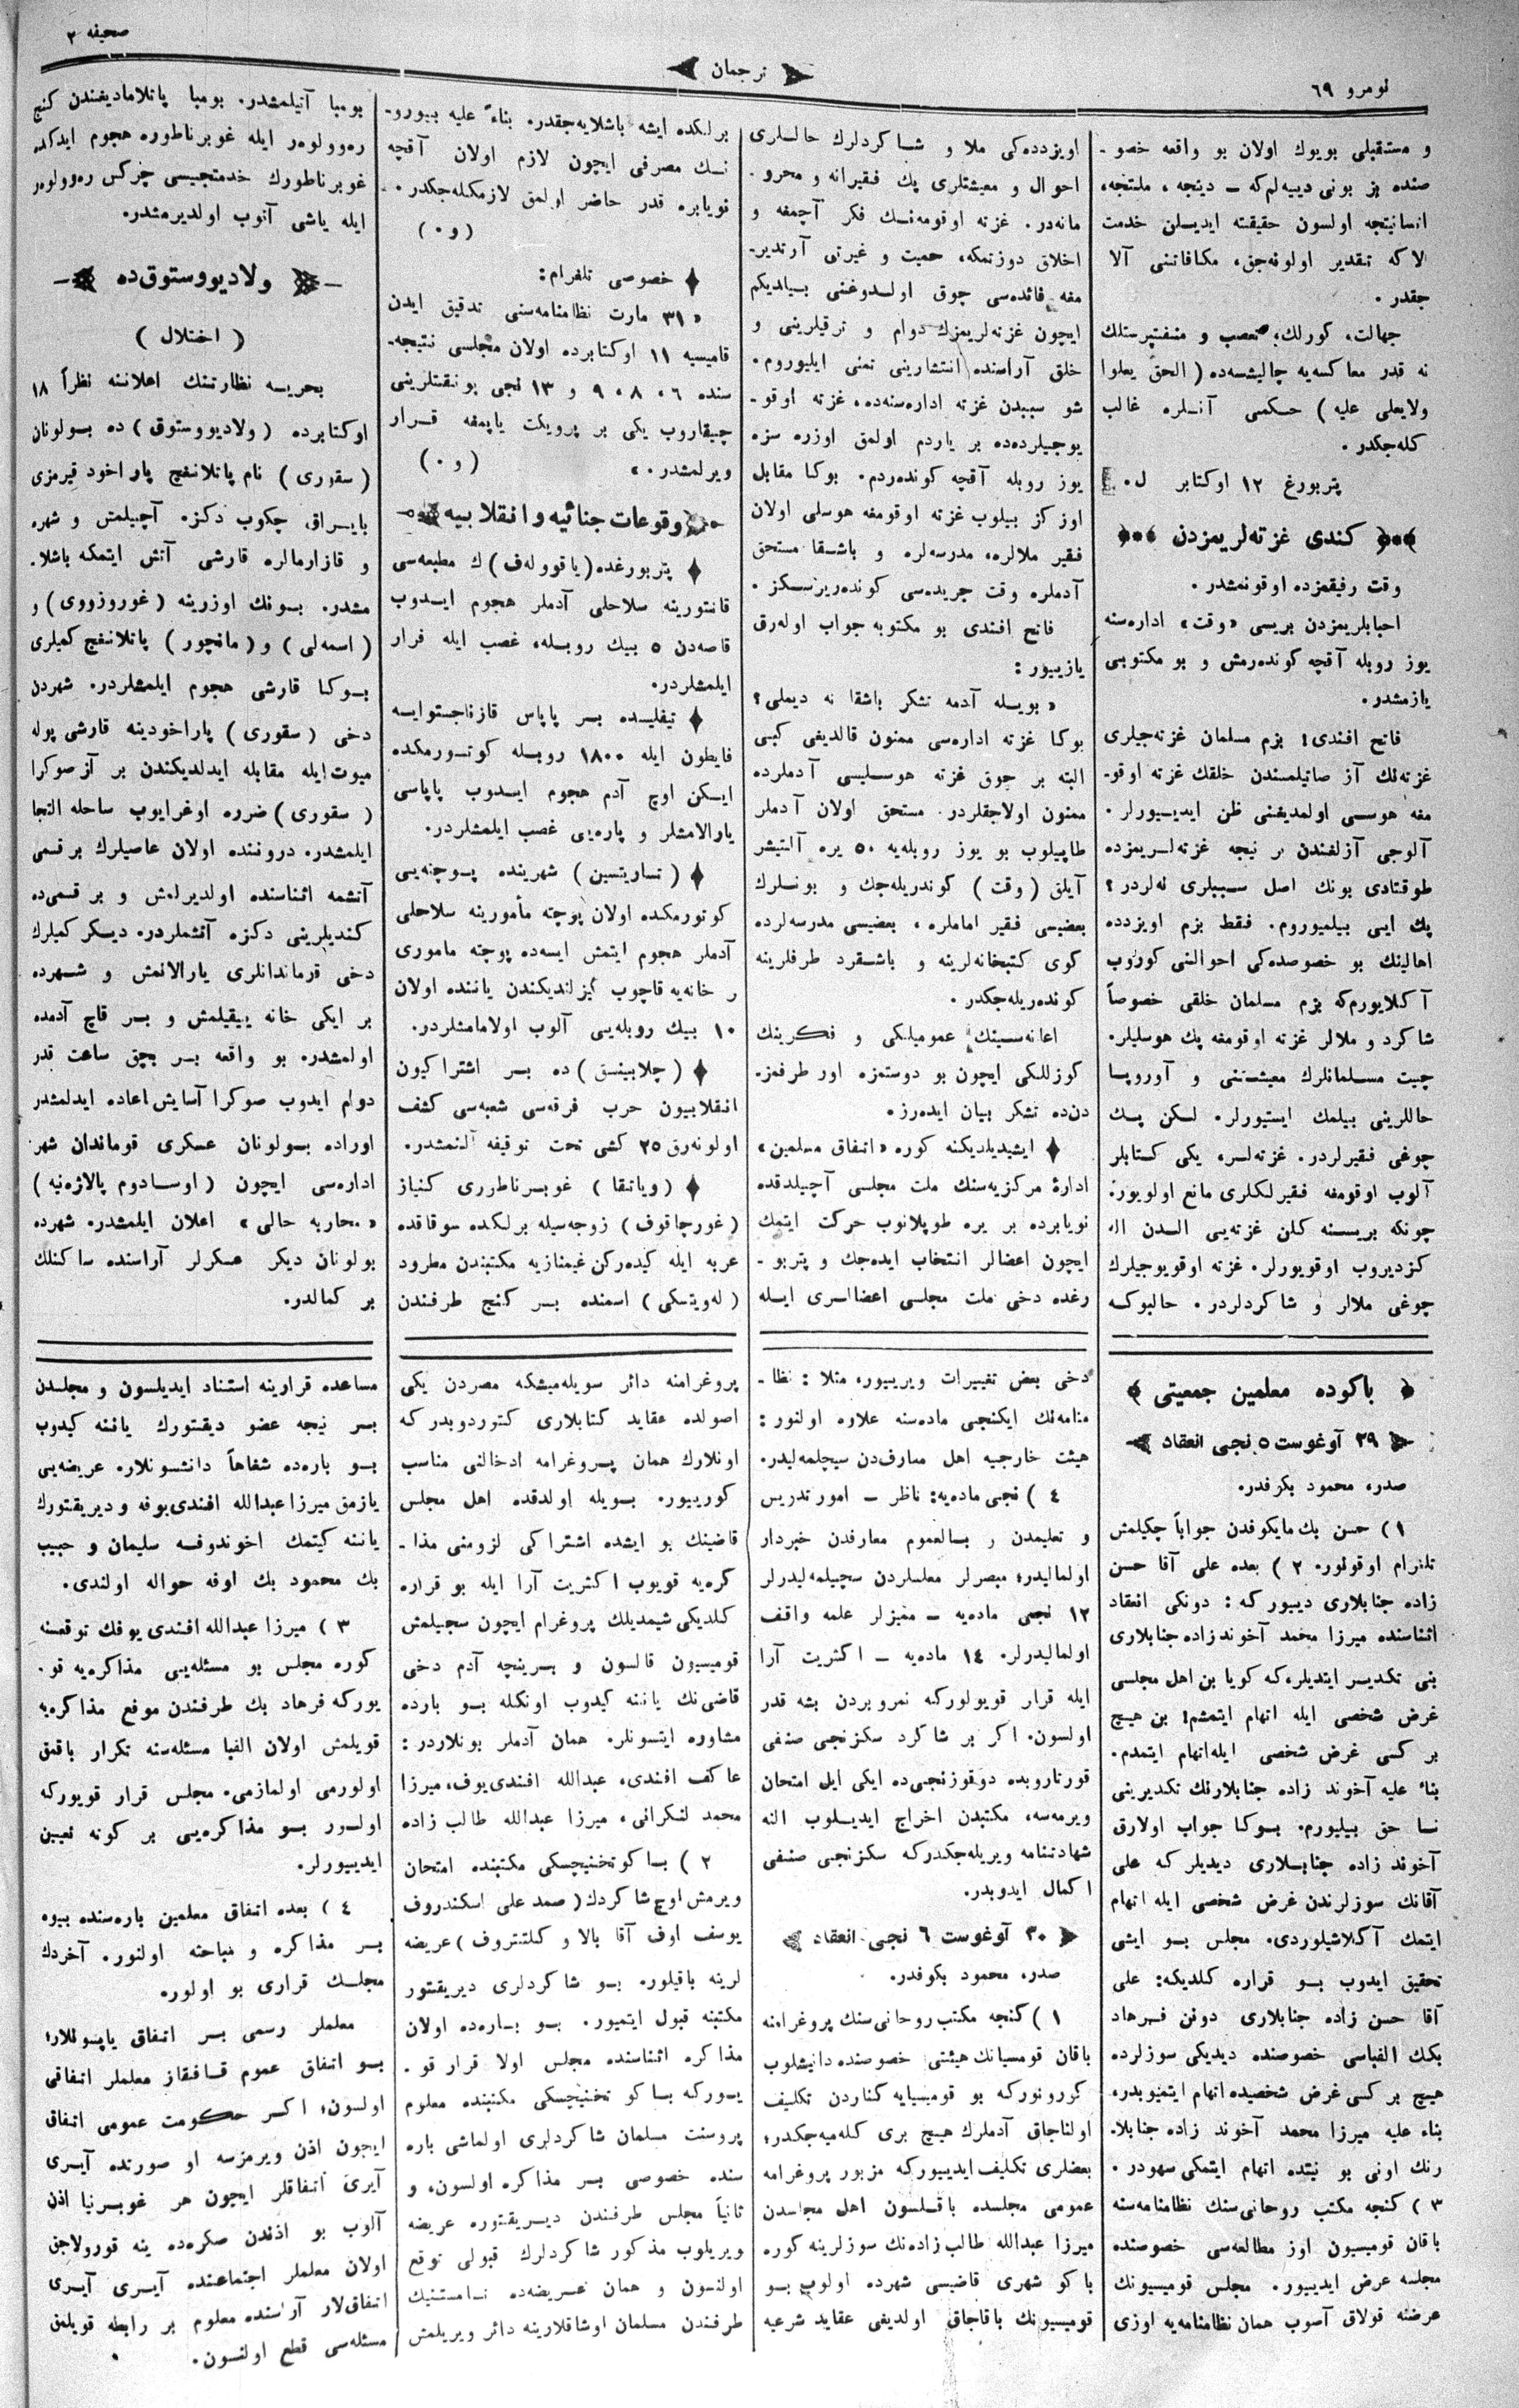 نومرو ٦٩
ترجمان
صحیفه ٢
و مستقبلی بویوك اولان بو واقعه خصو-
صنده بز بونی دییه‌لم‌که – دینجه، ملتجه،
انسانیتجه اولسون حقیقته ایدیلن خدمت
لاکه تقدیر اولونه‌جق، مکافاتنی آلا
جقدر.
جهالت، کورلك، تعصب و منفتپرستلك
نه قدر معاکسه‌یه چالیشسه‌ده (الحق یعلوا
ولایعلی علیه) حکمی آنلره غالب
کله‌جکدر.
پتربورغ ١٢ اوکتابر ل.
کندی غزته‌لریمزدن
وقت رفیقمزده اوقونمشدر.
احبابلریمزدن بریسی «وقت» اداره‌سنه
یوز روبله آقچه کونده‌رمش و بو مکتوبی
یازمشدر.
فاتح افندی! بزم مسلمان غزته‌جیلری
غزته‌نك آز صاتیلمسندن خلقك غزته اوقو-
مغه هوسی اولمدیغنی ظن ایدیورلر.
آلوجی آزلغندن بر نیجه غزته‌لریمزده
طوقتادی بونك اصل سببلری نه‌لردر؟
پك ایی بیلمیوروم. فقط بزم اویزدده
اهالینك بو خصوصده‌کی احوالنی کوروب
آکلایورم‌که بزم مسلمان خلقی خصوصاً
شاکرد و ملالر غزته اوقومغه پك هوسلیلر.
چیت مسلمانلرك معیشتنی و آوروپا
حاللرینی بیلمك ایستیورلر. لکن پك
چوغی فقیرلردر. غزته‌لره یکی کتابلر
آلوب اوقومغه فقیرلکلری مانع اولویور.
چونکه بریسنه کلن غزته‌یی الدن اله
کزدیروب اوقویورلر. غزته اوقویوجیلرك
چوغی ملالر و شاکردلردر. حالبوکه
اویزدده‌کی ملا و شاکردلرك حاللری
احوال و معیشتلری پك فقیرانه و محرو-
مانه‌در. غزته اوقومه‌نك فکر آچمغه و
اخلاق دوزتمکه، حمیت و غیرتی آرتدیر-
مغه فائده‌سی چوق اولدوغنی بیلدیکم
ایچون غزته‌لریمزك دوام و ترقیلرینی و
خلق آراسنده انتشارینی تمنی ایلیوروم.
شو سببدن غزته اداره‌سنه‌ده، غزته اوقو-
یوجیلرده‌ده بر یاردم اولمق اوزره سزه
یوز روبله آقچه کونده‌ردم. بوکا مقابل
اوزکز بیلوب غزته اوقومغه هوسلی اولان
فقیر ملالره، مدرسه‌لره و باشقا مستحق
آدملره وقت جریده‌سی کونده‌ریرسکز.
فاتح افندی بو مکتوبه جواب اوله‌رق
یازییور:
«بویله آدمه تشکر باشقا نه دیملی؟
بوکا غزته اداره‌سی ممنون قالدیغی کبی
البته بر چوق غزته هوسلیسی آدملرده
ممنون اولاجقلردر. مستحق اولان آدملر
طاپیلوب بو یوز روبله‌یه ٥٠ یره آلتیشر
آیلق (وقت) کوندریله‌جك و بونلرك
بعضیسی فقیر اماملره، بعضیسی مدرسه‌لرده
کوی کتبخانه‌لرینه و باشقرد طرفلرینه
کونده‌ریله‌جکدر.
اعانه‌سینك عمومیلکی و فکرینك
کوزللکی ایچون بو دوستمزه اور طرفمز-
دن‌ده تشکر بیان ایده‌رز.
ایشیدیلدیکنه کوره «اتفاق مسلمین»
ادارهٔ مرکزیه‌سنك ملت مجلسی آچیلدقده
نویابرده بر یره طوپلانوب حرکت ایتمك
ایچون اعضالر انتخاب ایده‌جك و پتربو-
رغده دخی ملت مجلسی اعضالری ایله
برلکده ایشه باشلایه‌جقدر. بناءً علیه بیورو-
نك مصرفی ایچون لازم اولان آقچه
نویابره قدر حاضر اولمق لازمکله‌جکدر.
(و.)
خصوصی تلغرام:
«٣١ مارت نظامنامه‌سنی تدقیق ایدن
قامیسیه ١١ اوکتابرده اولان مجلسی نتیجه-
سنده ٦، ٨، ٩ و ١٣ نجی بونقتلرینی
چیقاروب یکی بر پرویکت یاپمغه قرار
ویرلمشدر.» (و.)
وقوعات جنائیه و انقلابیه
پتربورغده (یاقووله‌ف)ك مطبعه‌سی
قانتورینه سلاحلی آدملر هجوم ایدوب
قاصه‌دن ٥ بیك روبله، غصب ایله فرار
ایلمشلردر.
تیفلیسده بر پاپاس قازناچستوایسه
فایطون ایله ١٨٠٠ روبله کوتورمکده
ایکن اوچ آدم هجوم ایدوب پاپاسی
یارالامشلر و پاره‌یی غصب ایلمشلردر.
(تساریتسین) شهرینده پوچته‌یی
کوتورمکده اولان پوچته مأمورینه سلاحلی
آدملر هجوم ایتمش ایسه‌ده پوچته ماموری
ر خانه‌یه قاچوب کیزلندیکندن یاننده اولان
١٠ بیك روبله‌یی آلوب اولامامشلردر.
(چلابینسق)ده بر اشتراکیون
انقلابیون حرب فرقه‌سی شعبه‌سی کشف
اولونه‌رق ٢٥ کشی تحت توقیفه آلنمشدر.
(ویاتقا) غوبرناطوری کنیاز
(غورچاقوف) زوجه‌سیله برلکده سوقاقده
عربه ایله کیده‌رکن غیمنازیه مکتبندن مطرود
(له‌ویتسکی) اسمنده بر کنج طرفندن
بومبا آتیلمشدر. بومبا پاتلامادیغندن کنج
ره‌وولوه‌ر ایله غوبرناطوره هجوم ایدکده
غوبرناطورك خدمتجیسی چرکس ره‌وولوه‌ر
ایله یاشی آتوب اولدیرمشدر.
ولادیووستوق‌ده
(اختلال)
بحریه نظارتنك اعلاننه نظراً ١٨
اوکتابرده (ولادیووستوق) ده بولونان
(سقوری) نام پاتلانغچ پاراخود قیرمزی
بایراق چکوب دکزه آچیلمش و شهره
و قازارمالره قارشی آتش ایتمکه باشلا-
مشدر. بونك اوزرینه (غوروزووی) و
(اسمه‌لی) و (مانچور) پاتلانغچ کمیلری
بوکا قارشی هجوم ایلمشلردر. شهردن
دخی (سقوری) پاراخودینه قارشی پوله
میوت ایله مقابله ایدلدیکندن بر آز صوکرا
(سقوری) ضرره اوغرایوب ساحله التجا
ایلمشدر. دروننده اولان عاصیلرك بر قسمی
آتشمه اثناسنده اولدیرلمش و بر قسمی‌ده
کندیلرینی دکزه آتشملردر. دیکر کمیلرك
دخی قرماندانلری یارالانمش و شهرده
بر ایکی خانه ییقیلمش و بر قاچ آدمده
اولمشدر. بو واقعه بر بچق ساعت قدر
دوام ایدوب صوکرا آسایش اعاده ایدلمشدر
اوراده بولونان عسکری قوماندان شهر
اداره‌سی ایچون (اوسادوم پالاژه‌نیه)
«محاربه حالی» اعلان ایلمشدر. شهرده
بولونان دیکر عسکرلر آراسنده ساکنلك
بر کمالدر.
باکوده معلمین جمعیتی
٢٩ آوغوست ٥ نجی انعقاد
صدر، محمود بکوفدر.
١) حسن بك مایکوفدن جواباً چکیلمش
تلغرام اوقولور. ٢) بعده علی آقا حسن
زاده جنابلاری دیبور که: دونکی انعقاد
اثناسنده میرزا محمد آخوند زاده جنابلاری
بنی تکدیر ایتدیلر، که کویا بن اهل مجلسی
غرض شخصی ایله اتهام ایتمشم! بن هیچ
بر کسی غرض شخصی ایله اتهام ایتمدم.
بناءً علیه آخوند زاده جنابلارنك تکدیرینی
نا حق بیلیورم. بوکا جواب اولارق
آخوند زاده جنابلاری دیدیلر که علی
آقانك سوزلرندن غرض شخصی ایله اتهام
ایتمك آکلاشیلوردی. مجلس بو ایشی
تحقیق ایدوب بو قراره کلدیکه: علی
آقا حسن زاده جنابلاری دونن فرهاد
بکك الفباسی خصوصنده دیدیکی سوزلرده
هیچ بر کسی غرض شخصیده اتهام ایتمیوبدر،
بناء علیه میرزا محمد آخوند زاده جنابلا-
رنك اونی بو نیتده اتهام ایتمکی سهودر.
٣) کنجه مکتب روحانی‌سنك نظامنامه‌سنه
باقان قومیسیون اوز مطالعه‌سی خصوصنده
مجلسه عرض ایدییور. مجلس قومیسیونك
عرضنه قولاق آسوب همان نظامنامه‌یه اوزی
دخی بعض تغییرات ویرییور، مثلا: نظا-
منامه‌نك ایکنجی ماده‌سنه علاوه اولنور:
هیئت خارجیه اهل معارف‌دن سیچلمه‌لیدر.
٤) نجی ماده‌یه: ناظر – امور تدریس
و تعلیمدن و بالعموم معارفدن خبردار
اولمالیدر؛ مبصرلر معلملردن سچیلمه‌لیدرلر
١٢ نجی ماده‌یه – ممیزلر علمه واقف
اولمالیدرلر. ١٤ ماده‌یه – اکثریت آرا
ایله قرار قویولورکه نمره بردن بشه قدر
اولسون. اکر بر شاکرد سکزنجی صنفی
قورتاروبده دوقوزنجی‌ده ایکی ایل امتحان
ویرمه‌سه، مکتبدن اخراج ایدیلوب النه
شهادتنامه ویریله‌جکدرکه سکزنجی صنفی
اکمال ایدوبدر.
٣٠ آوغوست ٦ نجی انعقاد
صدر، محمود بکوفدر.
١) کنجه مکتب روحانی‌سنك پروغرامنه
باقان قومسیانك هیئتی خصوصنده دانیشلوب
کورونورکه بو قومیسیایه کناردن تکلیف
اولناجاق آدملرك هیچ بری کله‌میه‌جکدر؛
بعضلری تکلیف ایدییورکه مزبور پروغرامه
عمومی مجلسده باقلسون اهل مجلسدن
میرزا عبدالله طالب زاده‌نك سوزلرینه کوره
باکو شهری قاضیسی شهرده اولوب بو
قومیسیونك باقاجاق اولدیغی عقاید شرعیه
پروغرامنه دائر سویله‌میشکه مصردن یکی
اصولده عقاید کتابلاری کتوردوبدر که
اونلارك همان پروغرامه ادخالنی مناسب
کورییور. بویله اولدقده اهل مجلس
قاضینك بو ایشده اشتراکی لزومنی مذا-
کره‌یه قویوب اکثریت آرا ایله بو قراره
کلدیکی شیمدیلك پروغرام ایچون سچیلمش
قومیسیون قالسون و برینچه آدم دخی
قاضی‌نك یاننه کیدوب اونکله بو بارده
مشاوره ایتسونلر. همان آدملر بونلاردر:
عاکف افندی، عبدالله افندی‌یوف، میرزا
محمد لنکرانی، میرزا عبدالله طالب زاده
٢) باکو تخنیچسکی مکتبنده امتحان
ویرمش اوچ شاکردك (صمد علی اسکندروف
یوسف اوف آقا بالا و کلنتروف) عریضه
لرینه باقیلور. بو شاکردلری دیریقتور
مکتبنه قبول ایتمیور. بو بارده اولان
مذاکره اثناسنده مجلس اولا قرار قو-
یدورکه باکو تخنیچسکی مکتبنده معلوم
پروسنت مسلمان شاکردلری اولماشی باره
سنده خصوصی بر مذاکره اولسون، و
ثانیاً مجلس طرفندن دیریقتوره عریضه
ویریلوب مذکور شاکردلرك قبولی توقع
اولنسون و همان عریضه‌ده
طرفندن مسلمان اوشاقلارینه دائر ویریلمش
مساعده قرارینه استناد ایدیلسون و مجلسدن
بر نیچه عضو دیقتورك یاننه کیدوب
بو بارده شفاهاً دانشسونلار. عریضه‌یی
یازمق میرزا عبدالله افندی‌یوفه و دیریقتورك
یاننه کیتمك اخوندوفه سلیمان و حبیب
بك محمود بك اوفه حواله اولندی.
٣) میرزا عبدالله افندی یوفك توقعنه
کوره مجلس بو مسئله‌یی مذاکره‌یه قو-
یورکه فرهاد بك طرفندن موقع مذاکره‌یه
قویلمش اولان الفبا مسئله‌سنه تکرار باقمق
اولورمی اولمازمی. مجلس قرار قویورکه
اولور بو مذاکره‌یی بر کونه تعیین
ایدییورلر.
٤) بعده اتفاق معلمین باره‌سنده بیوه
بر مذاکره و مباحثه اولنور. آخردك
مجلسك قراری بو اولور.
معلملر رسمی بر اتفاق یاپسونلار؛
بو اتفاق عموم قافقاز معلملر اتفاقی
اولسون؛ اکر حکومت عمومی اتفاق
ایچون اذن ویرمزسه او صورتده آیری
آیری اتفاقلر ایچون هر غوبرنیا اذن
آلوب بو اذندن صکره‌ده ینه قورولاجق
اولان معلملر اجتماعنده آیری آیری
اتفاق‌لار آراسنده معلوم بر رابطه قویلمق
مسئله‌سی قطع اولنسون.